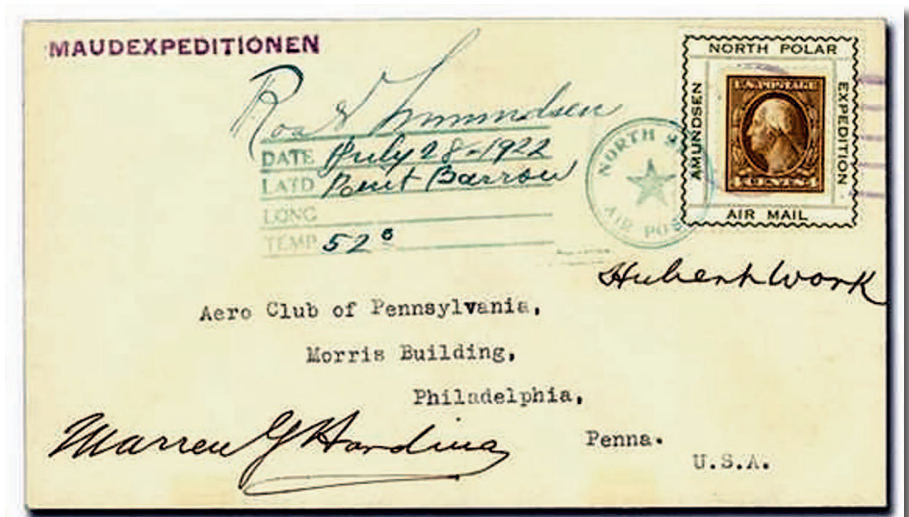 MAUDEXPEDITIONEN
Roald Amundsen
DATE July 28-1922
LATD Point Barrow
LONG
TEMP 52°
NORTH
AIR POST
NORTH POLAR
AMUNDSEN
EXPEDITION
AIR MAIL
U.S. POSTAGE
CENTS
Hubert Work
Aero Club of Pennsylvania,
Morris Building,
Philadelphia,
Penna.
U.S.A.
Warren G Harding